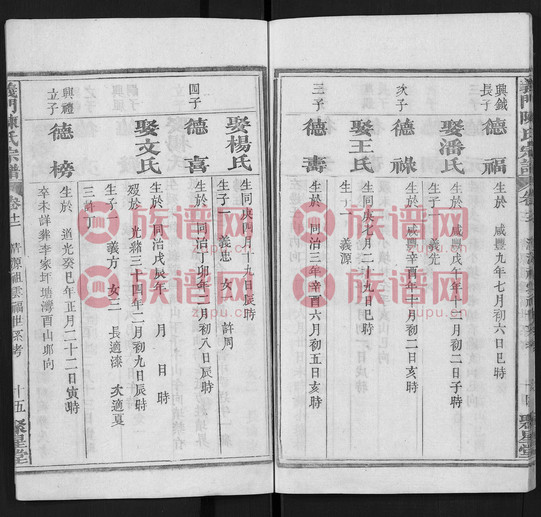 義門陳氏宗譜
興鉞長子
德福
生於 咸豐九年七月初六日巳時
娶潘氏
生於 咸豐戊午年十二月初二日子時
生子一 義先
次子
德祿
生於 咸豐辛酉年十一月初二日亥時
娶王氏
生同庚七月二十九日巳時
生子一 義源
三子
德壽
生於 同治三年辛酉六月初五日亥時
四子
娶楊氏
生同庚四月十九日辰時
生子一 義忠 女一 許周
德喜
生於 同治丁卯年二月初八日辰時
娶文氏
生於 同治戊辰年 月 日 時
歿於 光緒三十四年二月初九日辰時
生子一 義方 女二 長適漆 次適夏
興禮立子
德榜
生於 道光癸巳年正月二十二日寅時
卒未詳葬李家坪塘灣酉山卯向
義門陳氏宗譜
卷十二
清源祖雲福世系考
十五
聚星堂
族谱网
zupu.cn